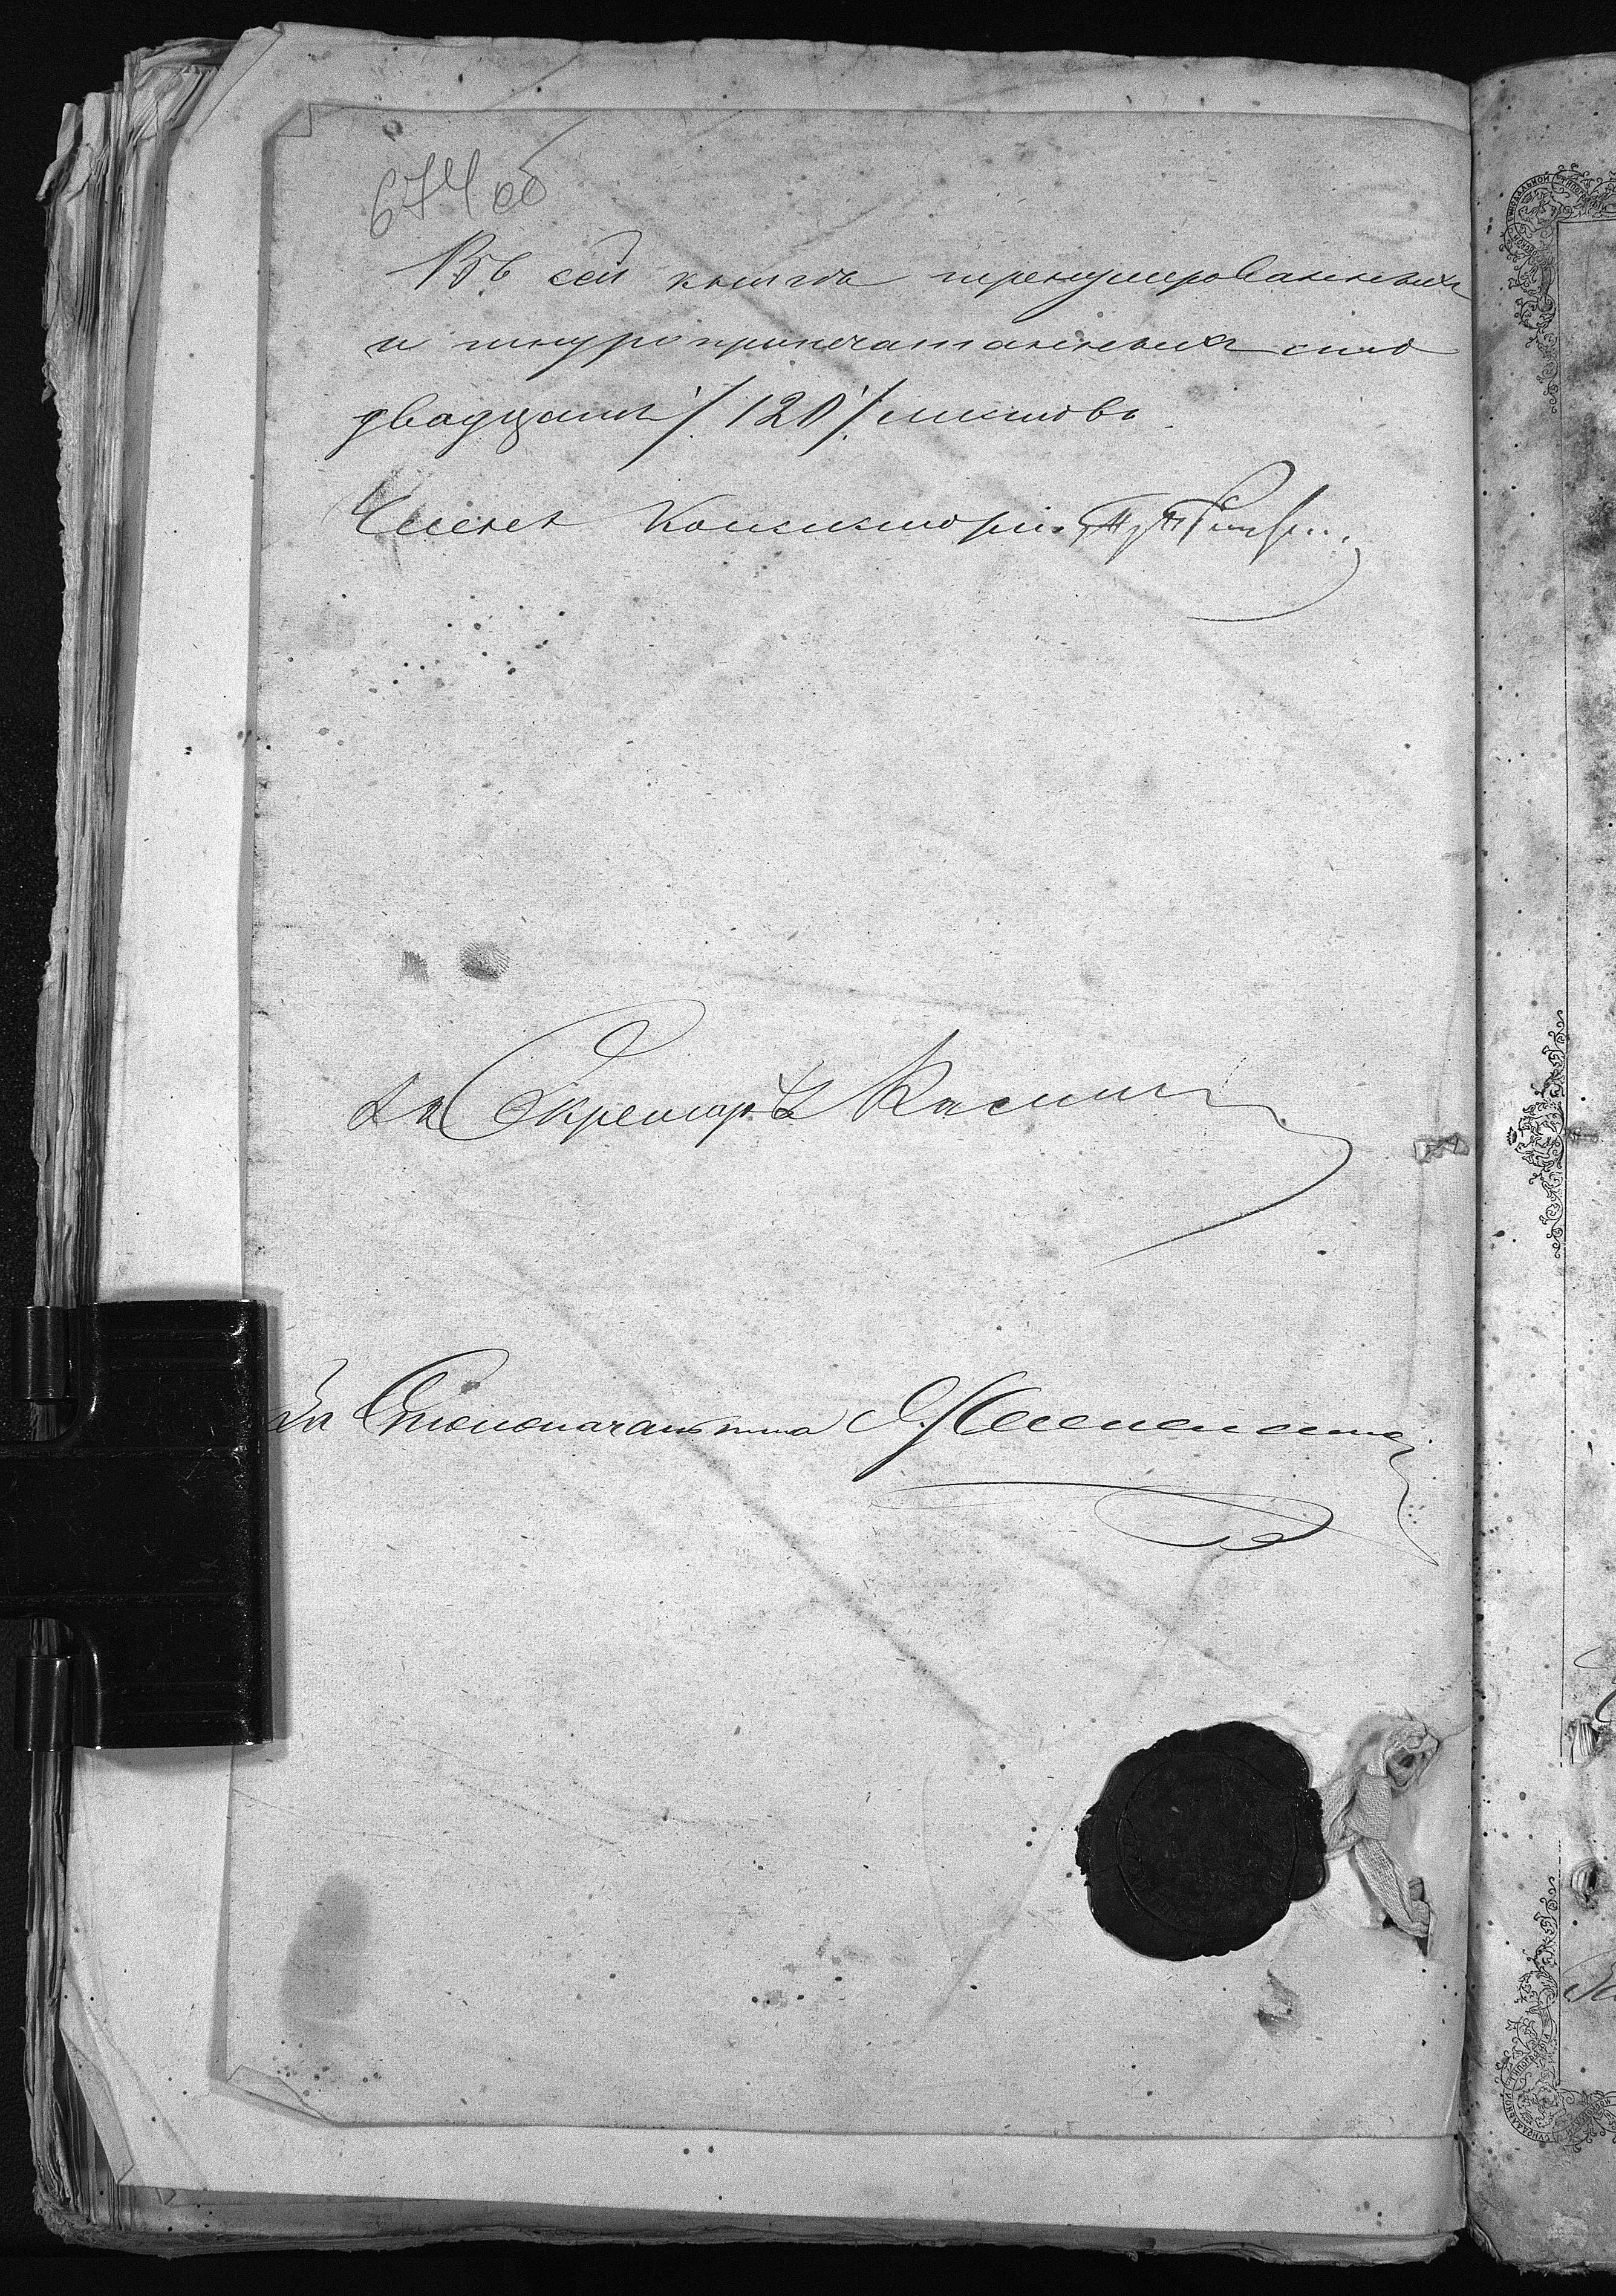 674 об
Въ сей книгѣ перенумерованныхъ
и шнуропропечатанныхъ сто
двадцать /120/ листовъ.
Членъ Консисторіи
За Секретаря
За Столоначальника